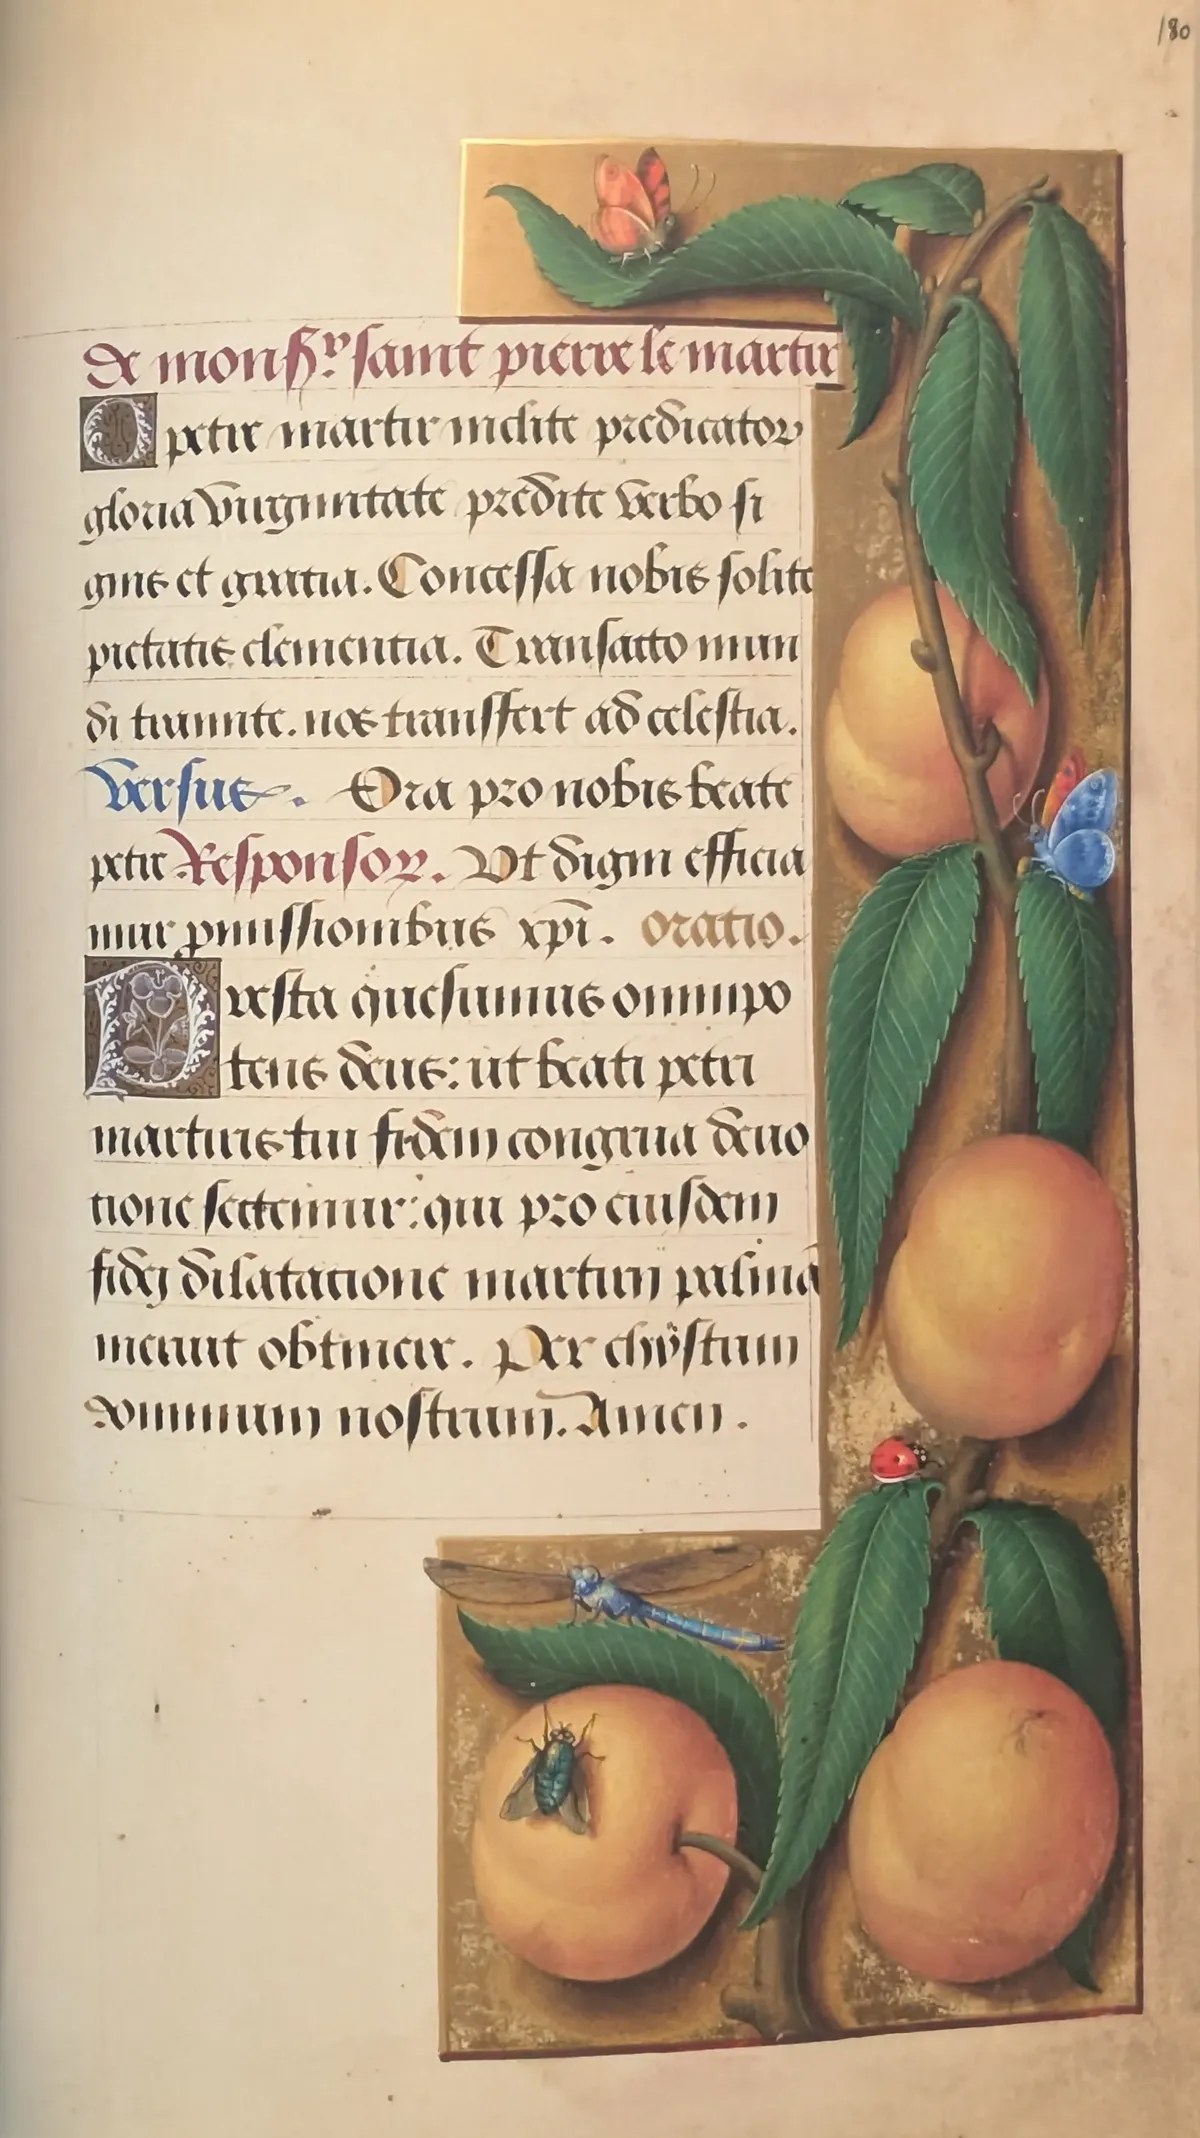 180
De monsr. saint pierre le martir
O petre martir inclite predicator
gloria virginitate predite verbo si
gnis et gratia. Concessa nobis solite
pietatis clementia. Transacto mun
di tramite. nos transfert ad celestia.
Versus. Ora pro nobis beate
petre Responsor. Ut digni efficia
mur pmissionibus xpi. oratio.
Presta quesumus omnipo
tens deus: ut beati petri
martiris tui fidem congrua deuo
tione sectemur: qui pro eiusdem
fidei dilatatione martirii palmā
meruit obtinere. Per christum
dominum nostrum. Amen.